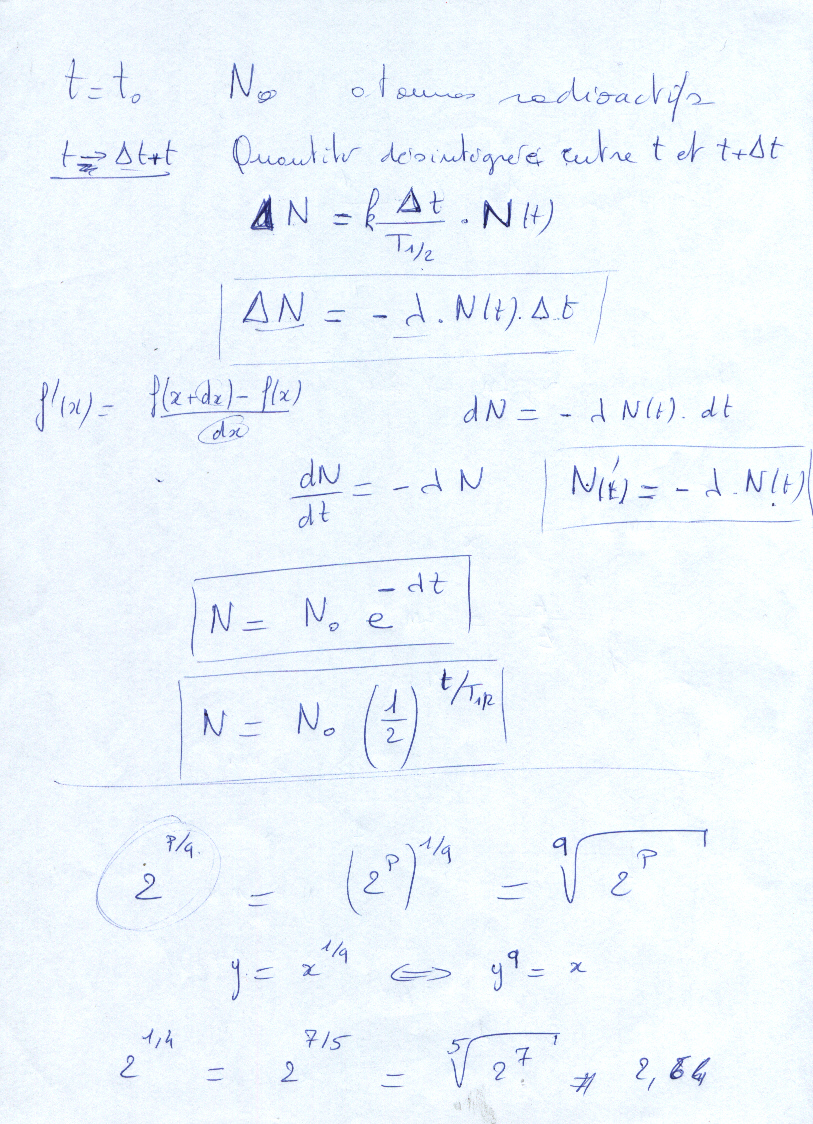 t = t₀ N₀ atomes radioactifs
t → Δt+t Quantité désintégrée entre t et t+Δt
ΔN = k Δt/T1/2 . N(t)
ΔN = - λ . N(t) . Δt
f'(x) = f(x+dx) - f(x) / dx dN = - λ N(t) . dt
dN/dt = - λ N N'(t) = - λ . N(t)
N = N₀ e^(-λt)
N = N₀ (1/2)^(t/T1/2)
2^(p/q) = (2^p)^(1/q) = q√(2^p)
y = x^(1/q) ⇔ y^q = x
2^(1,4) = 2^(7/5) = ⁵√(2^7) # 2,64